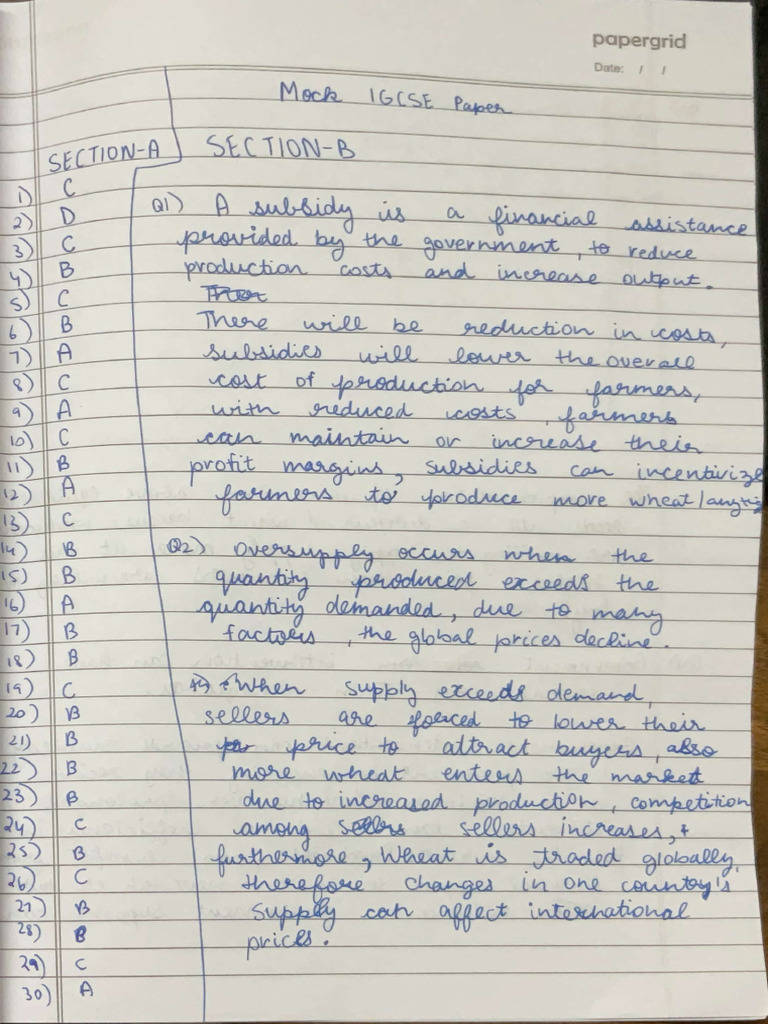 papergrid
Date: / /
Mock IGCSE Paper
SECTION-A
1) C
2) D
3) C
4) B
5) C
6) B
7) A
8) C
9) A
10) C
11) B
12) A
13) C
14) B
15) B
16) A
17) B
18) B
19) C
20) B
21) B
22) B
23) B
24) C
25) B
26) C
27) B
28) B
29) C
30) A
SECTION-B
Q1) A subsidy is a financial assistance
provided by the government, to reduce
production costs and increase output.
There will be reduction in costs,
subsidies will lower the overall
cost of production for farmers,
with reduced costs, farmers
can maintain or increase their
profit margins, subsidies can incentivize
farmers to produce more wheat/
Q2) Oversupply occurs when the
quantity produced exceeds the
quantity demanded, due to many
factors, the global prices decline.
When supply exceeds demand,
sellers are forced to lower their
price to attract buyers, also
more wheat enters the market
due to increased production, competition
among sellers increases,
furthermore, Wheat is traded globally,
therefore changes in one country's
supply can affect international
prices.